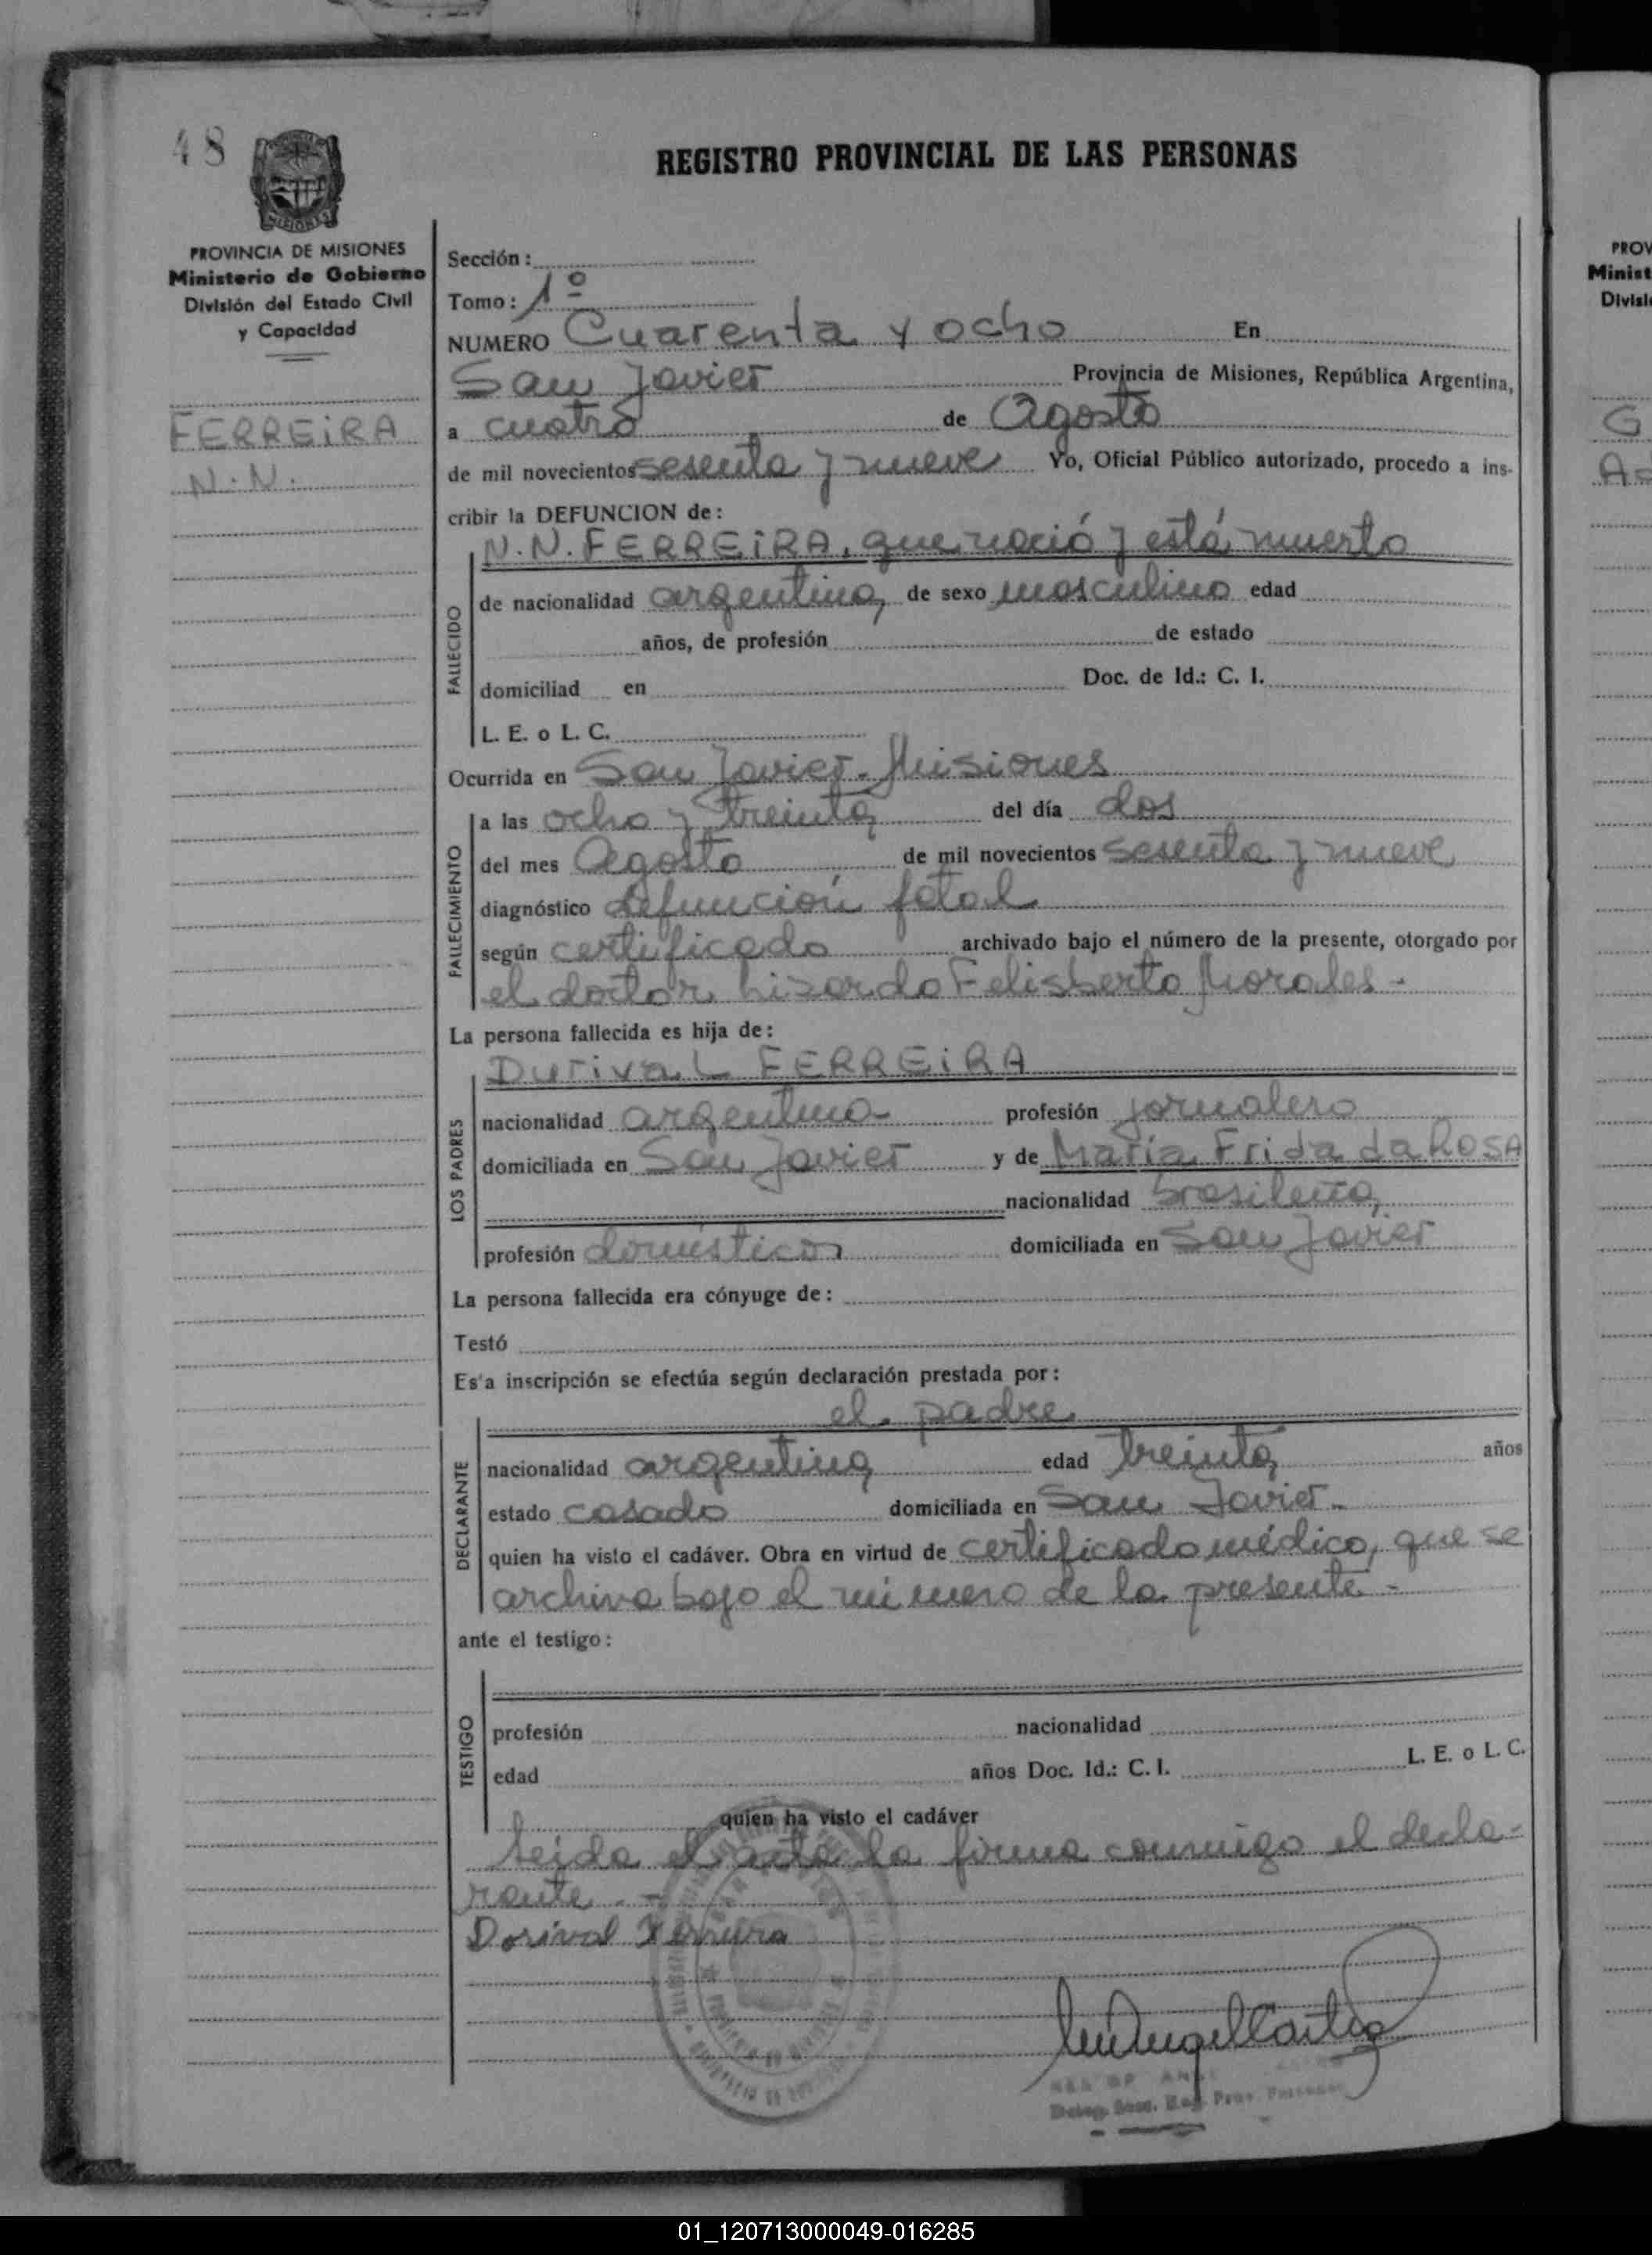 48
REGISTRO PROVINCIAL DE LAS PERSONAS
MISIONES
PROVINCIA DE MISIONES
Ministerio de Gobierno
División del Estado Civil
y Capacidad
FERREIRA
N.N.
Sección:
Tomo: 1º
NUMERO Cuarenta y ocho En
San Javier Provincia de Misiones, República Argentina,
a cuatro de Agosto
de mil novecientos sesenta y nueve Yo, Oficial Público autorizado, procedo a ins-
cribir la DEFUNCION de:
N.N. FERREIRA, que nació y está muerto
FALLECIDO
de nacionalidad argentina, de sexo masculino edad
años, de profesión de estado
domiciliad en Doc. de Id.: C. I.
L. E. o L. C.
Ocurrida en San Javier. Misiones
FALLECIMIENTO
a las ocho y treinta, del día dos
del mes Agosto de mil novecientos sesenta y nueve
diagnóstico defunción fetal
según certificado archivado bajo el número de la presente, otorgado por
el doctor Lisardo Felisberto Morales -
La persona fallecida es hija de:
LOS PADRES
Durival FERREIRA
nacionalidad argentina profesión jornalero
domiciliada en San Javier y de María Frida da ROSA
nacionalidad brasileña,
profesión domésticos domiciliada en San Javier
La persona fallecida era cónyuge de:
Testó
Es'a inscripción se efectúa según declaración prestada por:
el padre
DECLARANTE
nacionalidad argentina edad treinta, años
estado casado domiciliada en San Javier.
quien ha visto el cadáver. Obra en virtud de certificado médico, que se
archiva bajo el número de la presente -
ante el testigo:
TESTIGO
profesión nacionalidad
edad años Doc. Id.: C. I. L. E. o L. C.
quien ha visto el cadáver
Leida el acta la firma conmigo el decla-
rante. -
Dorival Ferreira
Deleg. Secc. Reg. Prov. Personas
PROV
Minist
Divisi
G
A
01_120713000049-016285